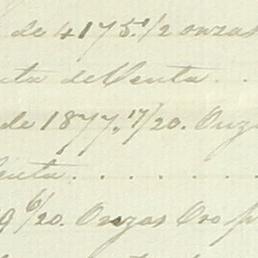 de 4175.1/2 onzas
nta de Venta . .
de 1877,17/20. Onz
enta . . . . . . .
9 6/20. Onzas Oro p